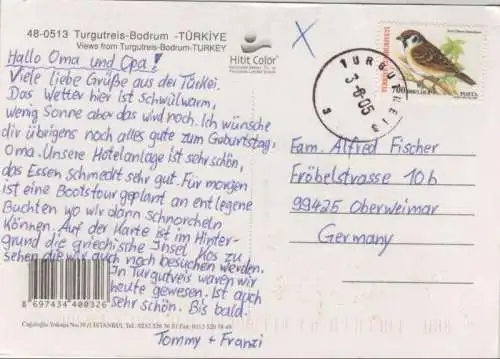 48-0513 Turgutreis-Bodrum -TÜRKİYE
Views from Turgutreis-Bodrum-TURKEY
Hitit Color
Hallo Oma und Opa!
Viele liebe Grüße aus der Türkei.
Das Wetter hier ist schwülwarm,
wenig Sonne aber das wird noch. Ich wünsche
dir übrigens noch alles gute zum Geburtstag,
Oma. Unsere Hotelanlage ist sehr schön,
das Essen schmeckt sehr gut. Für morgen
ist eine Bootstour geplant an entlegene
Buchten wo wir dann schnorcheln
können. Auf der Karte ist im Hinter-
grund die griechische Insel Kos zu
sehen die wir auch noch besuchen werden.
In Turgutreis waren wir
heute gewesen. Ist auch
sehr schön. Bis bald.
Tommy + Franzi
8 697434 400326
X
TURGUTREIS
3-6-05
700
POSTA
Fam. Alfred Fischer
Fröbelstrasse 10b
99425 Oberweimar
Germany